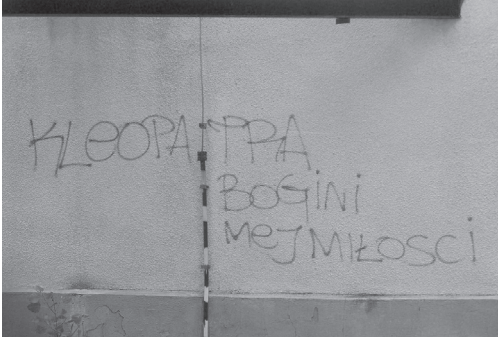 KLEOPATRA
BOGINI
MEJ MIŁOSCI